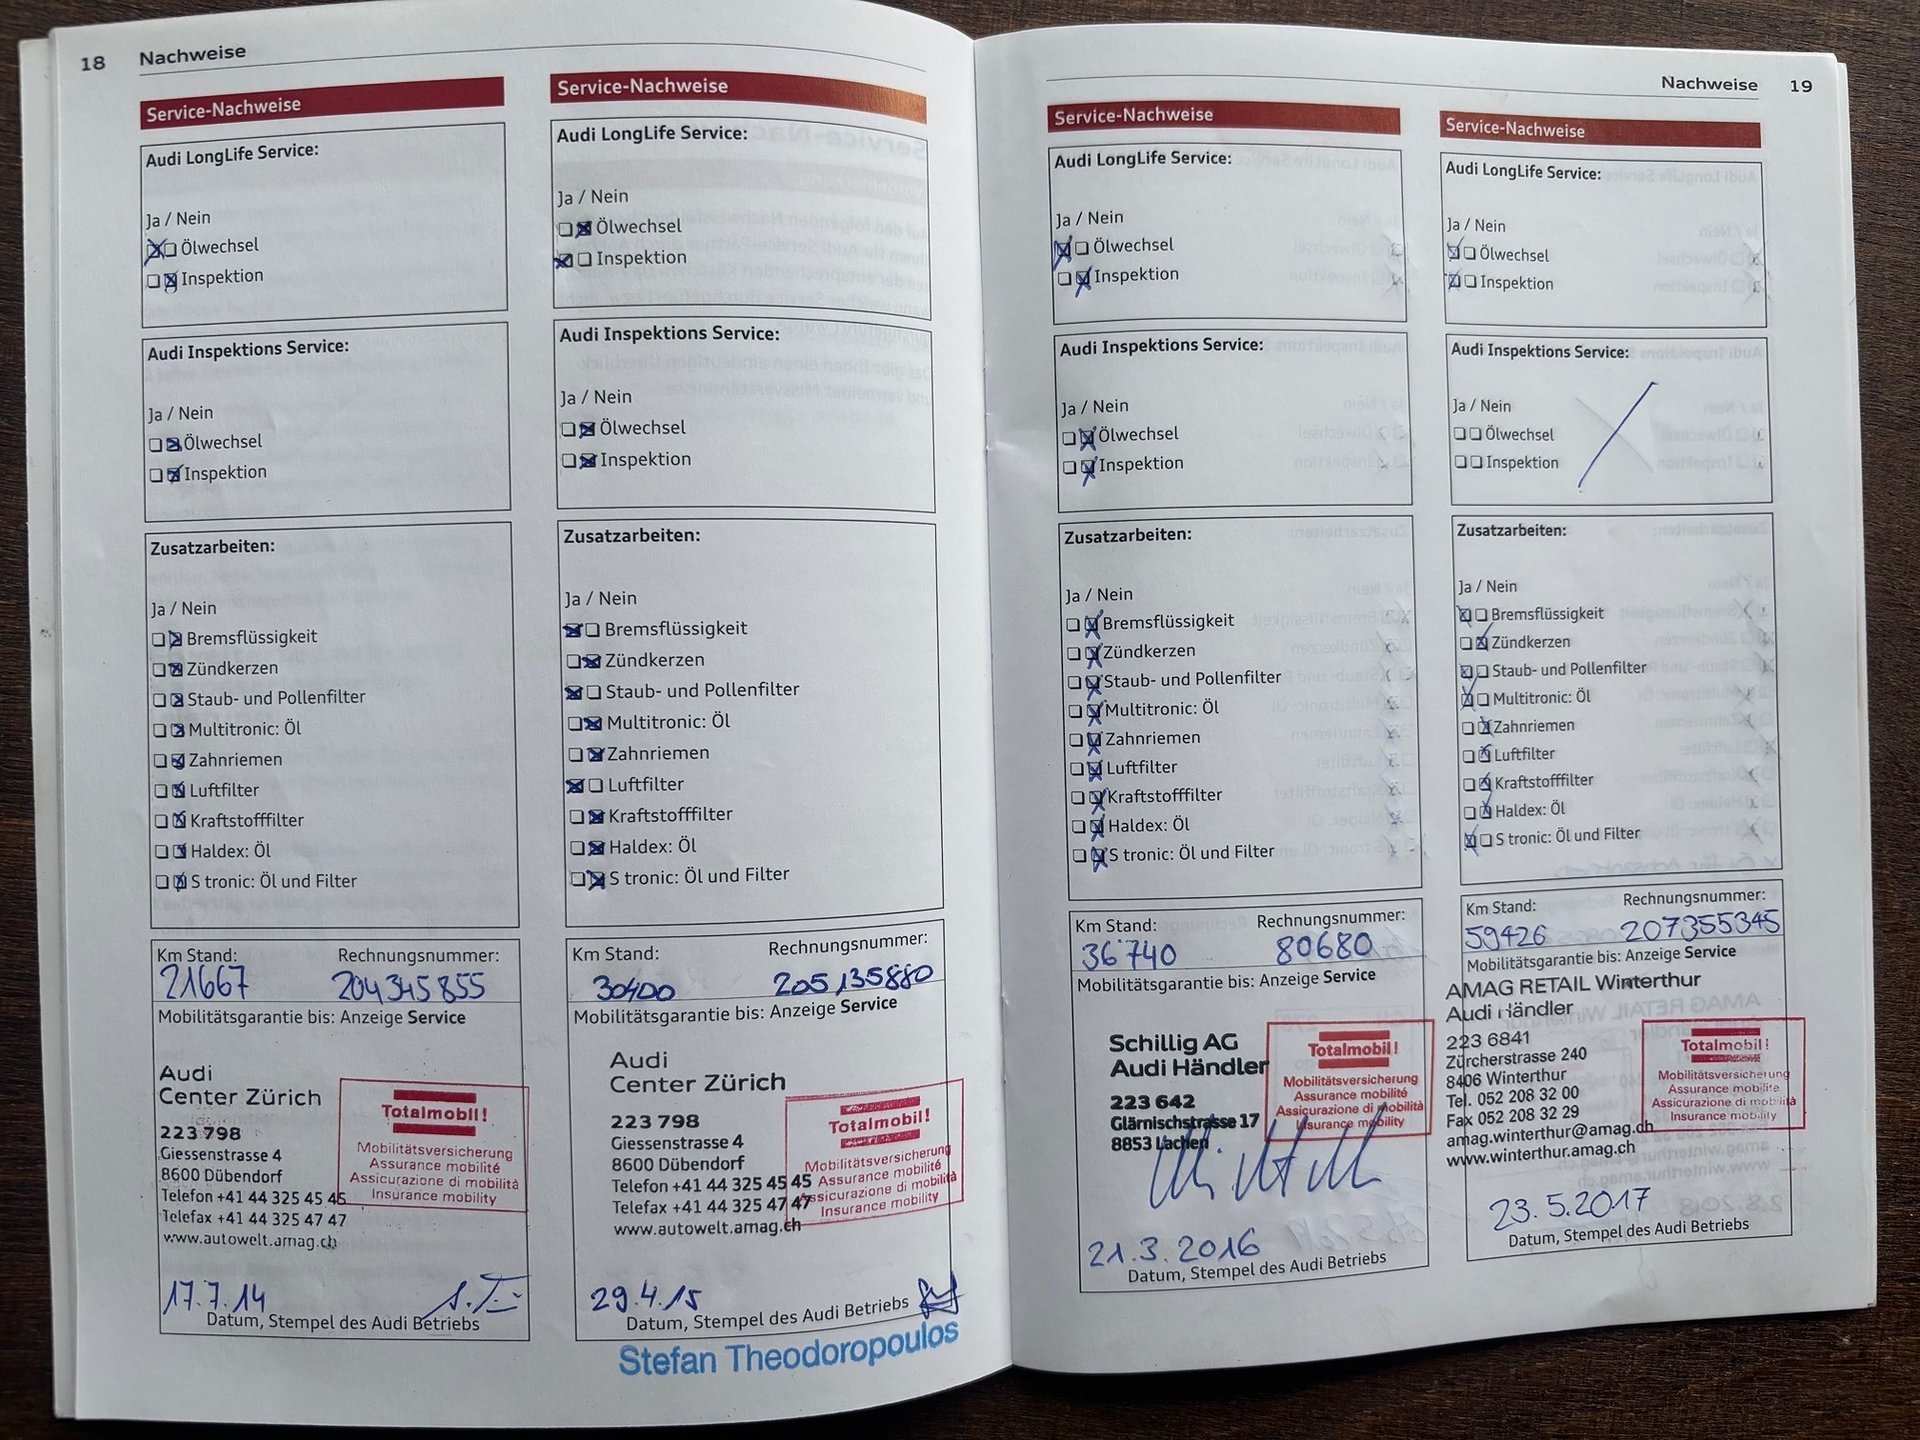 18 Nachweise
Service-Nachweise
Audi LongLife Service:
Ja / Nein
Ölwechsel
Inspektion
Audi Inspektions Service:
Ja / Nein
Ölwechsel
Inspektion
Zusatzarbeiten:
Ja / Nein
Bremsflüssigkeit
Zündkerzen
Staub- und Pollenfilter
Multitronic: Öl
Zahnriemen
Luftfilter
Kraftstofffilter
Haldex: Öl
S tronic: Öl und Filter
Km Stand: Rechnungsnummer:
21667 204345855
Mobilitätsgarantie bis: Anzeige Service
Audi
Center Zürich
223 798
Giessenstrasse 4
8600 Dübendorf
Telefon +41 44 325 45 45
Telefax +41 44 325 47 47
www.autowelt.amag.ch
Totalmobil!
Mobilitätsversicherung
Assurance mobilité
Assicurazione di mobilità
Insurance mobility
17.7.14
Datum, Stempel des Audi Betriebs
Service-Nachweise
Audi LongLife Service:
Ja / Nein
Ölwechsel
Inspektion
Audi Inspektions Service:
Ja / Nein
Ölwechsel
Inspektion
Zusatzarbeiten:
Ja / Nein
Bremsflüssigkeit
Zündkerzen
Staub- und Pollenfilter
Multitronic: Öl
Zahnriemen
Luftfilter
Kraftstofffilter
Haldex: Öl
S tronic: Öl und Filter
Km Stand: Rechnungsnummer:
30400 205135880
Mobilitätsgarantie bis: Anzeige Service
Audi
Center Zürich
223 798
Giessenstrasse 4
8600 Dübendorf
Telefon +41 44 325 45 45
Telefax +41 44 325 47 47
www.autowelt.amag.ch
Totalmobil!
Mobilitätsversicherung
Assurance mobilité
Assicurazione di mobilità
Insurance mobility
29.4.15
Datum, Stempel des Audi Betriebs
Stefan Theodoropoulos
Nachweise 19
Service-Nachweise
Audi LongLife Service:
Ja / Nein
Ölwechsel
Inspektion
Audi Inspektions Service:
Ja / Nein
Ölwechsel
Inspektion
Zusatzarbeiten:
Ja / Nein
Bremsflüssigkeit
Zündkerzen
Staub- und Pollenfilter
Multitronic: Öl
Zahnriemen
Luftfilter
Kraftstofffilter
Haldex: Öl
S tronic: Öl und Filter
Km Stand: Rechnungsnummer:
36740 80680
Mobilitätsgarantie bis: Anzeige Service
Schillig AG
Audi Händler
223 642
Glärnischstrasse 17
8853 Lachen
Totalmobil!
Mobilitätsversicherung
Assurance mobilité
Assicurazione di mobilità
Insurance mobility
21.3.2016
Datum, Stempel des Audi Betriebs
Service-Nachweise
Audi LongLife Service:
Ja / Nein
Ölwechsel
Inspektion
Audi Inspektions Service:
Ja / Nein
Ölwechsel
Inspektion
Zusatzarbeiten:
Ja / Nein
Bremsflüssigkeit
Zündkerzen
Staub- und Pollenfilter
Multitronic: Öl
Zahnriemen
Luftfilter
Kraftstofffilter
Haldex: Öl
S tronic: Öl und Filter
Km Stand: Rechnungsnummer:
59426 207355345
Mobilitätsgarantie bis: Anzeige Service
AMAG RETAIL Winterthur
Audi Händler
223 6841
Zürcherstrasse 240
8406 Winterthur
Tel. 052 208 32 00
Fax 052 208 32 29
amag.winterthur@amag.ch
www.winterthur.amag.ch
Totalmobil!
Mobilitätsversicherung
Assurance mobilité
Assicurazione di mobilità
Insurance mobility
23.5.2017
Datum, Stempel des Audi Betriebs